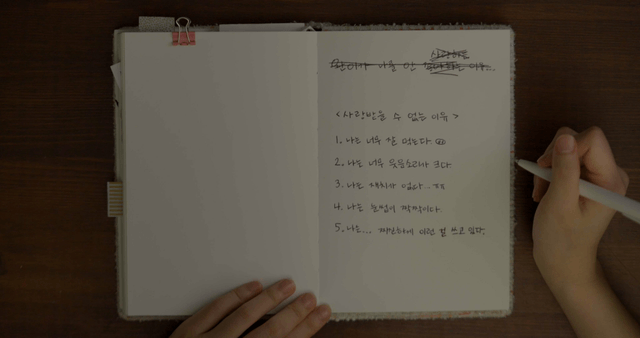 <사랑받을 수 없는 이유>
1. 나는 너무 잘 먹는다
2. 나는 너무 웃음소리가 크다.
3. 나는 재치가 없다...
4. 나는 눈썹이 짝짝이다.
5. 나는... 이런 걸 쓰고 있다.